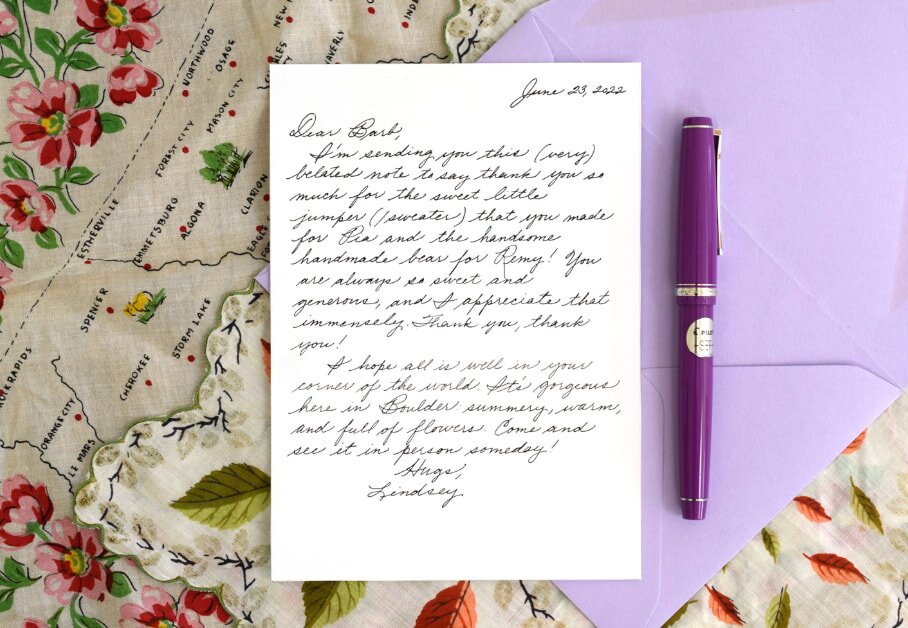 June 23, 2022
Dear Barb,
I'm sending you this (very)
belated note to say thank you so
much for the sweet little
jumper (/sweater) that you made
for Pia and the handsome
handmade bear for Remy! You
are always so sweet and
generous, and I appreciate that
immensely. Thank you, thank
you!
I hope all is well in your
corner of the world. It's gorgeous
here in Boulder: summery, warm,
and full of flowers. Come and
see it in person someday!
Hugs,
Lindsey
NORTHWOOD
OSAGE
MASON CITY
FOREST CITY
CLARION
ESTHERVILLE
EMMETSBURG
ALGONA
EAGLE
SPENCER
STORM LAKE
CHEROKEE
ROCK RAPIDS
ORANGE CITY
LE MARS
NEW
WAVERLY
CHARLES
PILOT